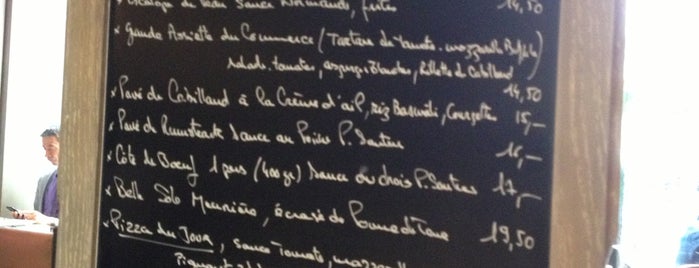 Escalope de Veau Sauce Normande, frites 14,50
* Grande Assiette du Commerce (Tartare de tomate. mozzarella Buffala)
salade. tomates, asperges blanches, Rillette de Cabillaud
14,50
* Pavé de Cabillaud à la Crème d'ail, riz Basmati, Courgette 15,-
* Pavé de Rumsteack Sauce au Poivre P. Sautées 16,-
* Côte de Boeuf 1 pers (400gr) Sauce au choix P. Sautées 17,-
* Belle Sole Meunière, écrasé de Pomme de Terre 19,50
* Pizza du Jour, Sauce Tomate, mozzarella